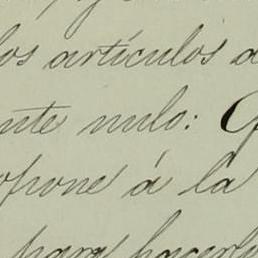 los artículos d
nte nulo: Q
opone á la
para hacerl